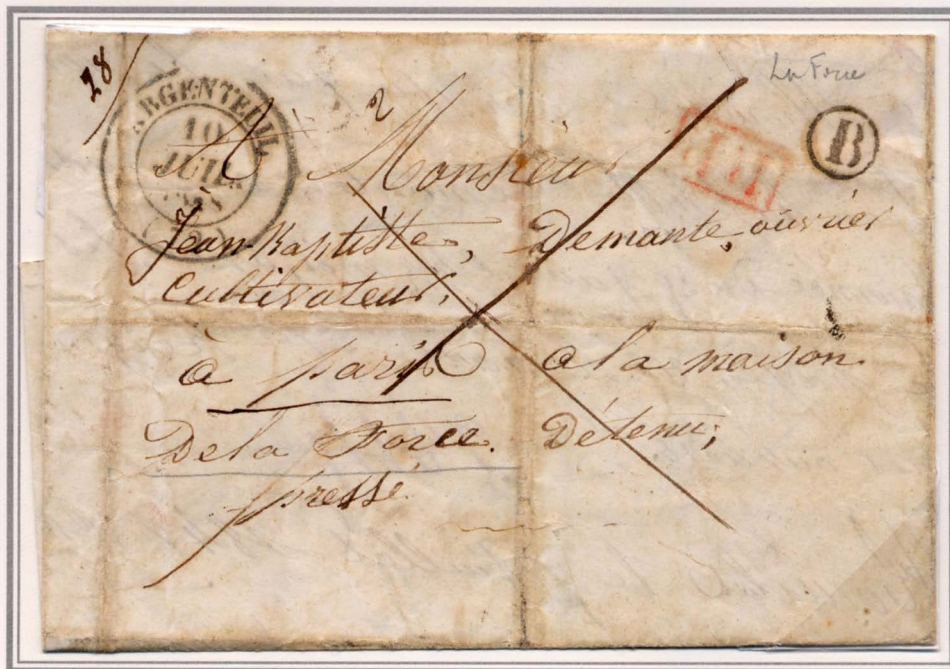 28
La Force
ARGENTEUIL
10
JUIL
B
2
A Monsieur
Jean-Baptiste, Demante, ouvrier
Cultivateur,
à paris a la maison
De la Force. Détenu,
pressé